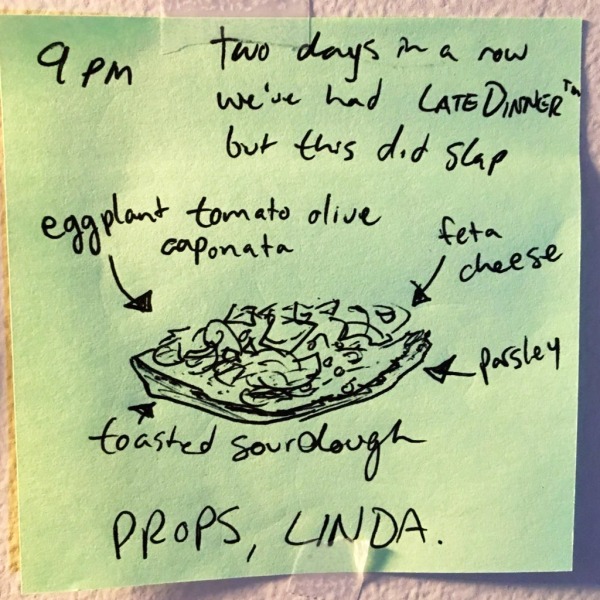 9 PM
two days in a row
we've had LATE DINNER™
but this did slap
eggplant tomato olive
caponata
feta
cheese
parsley
toasted sourdough
PROPS, LINDA.